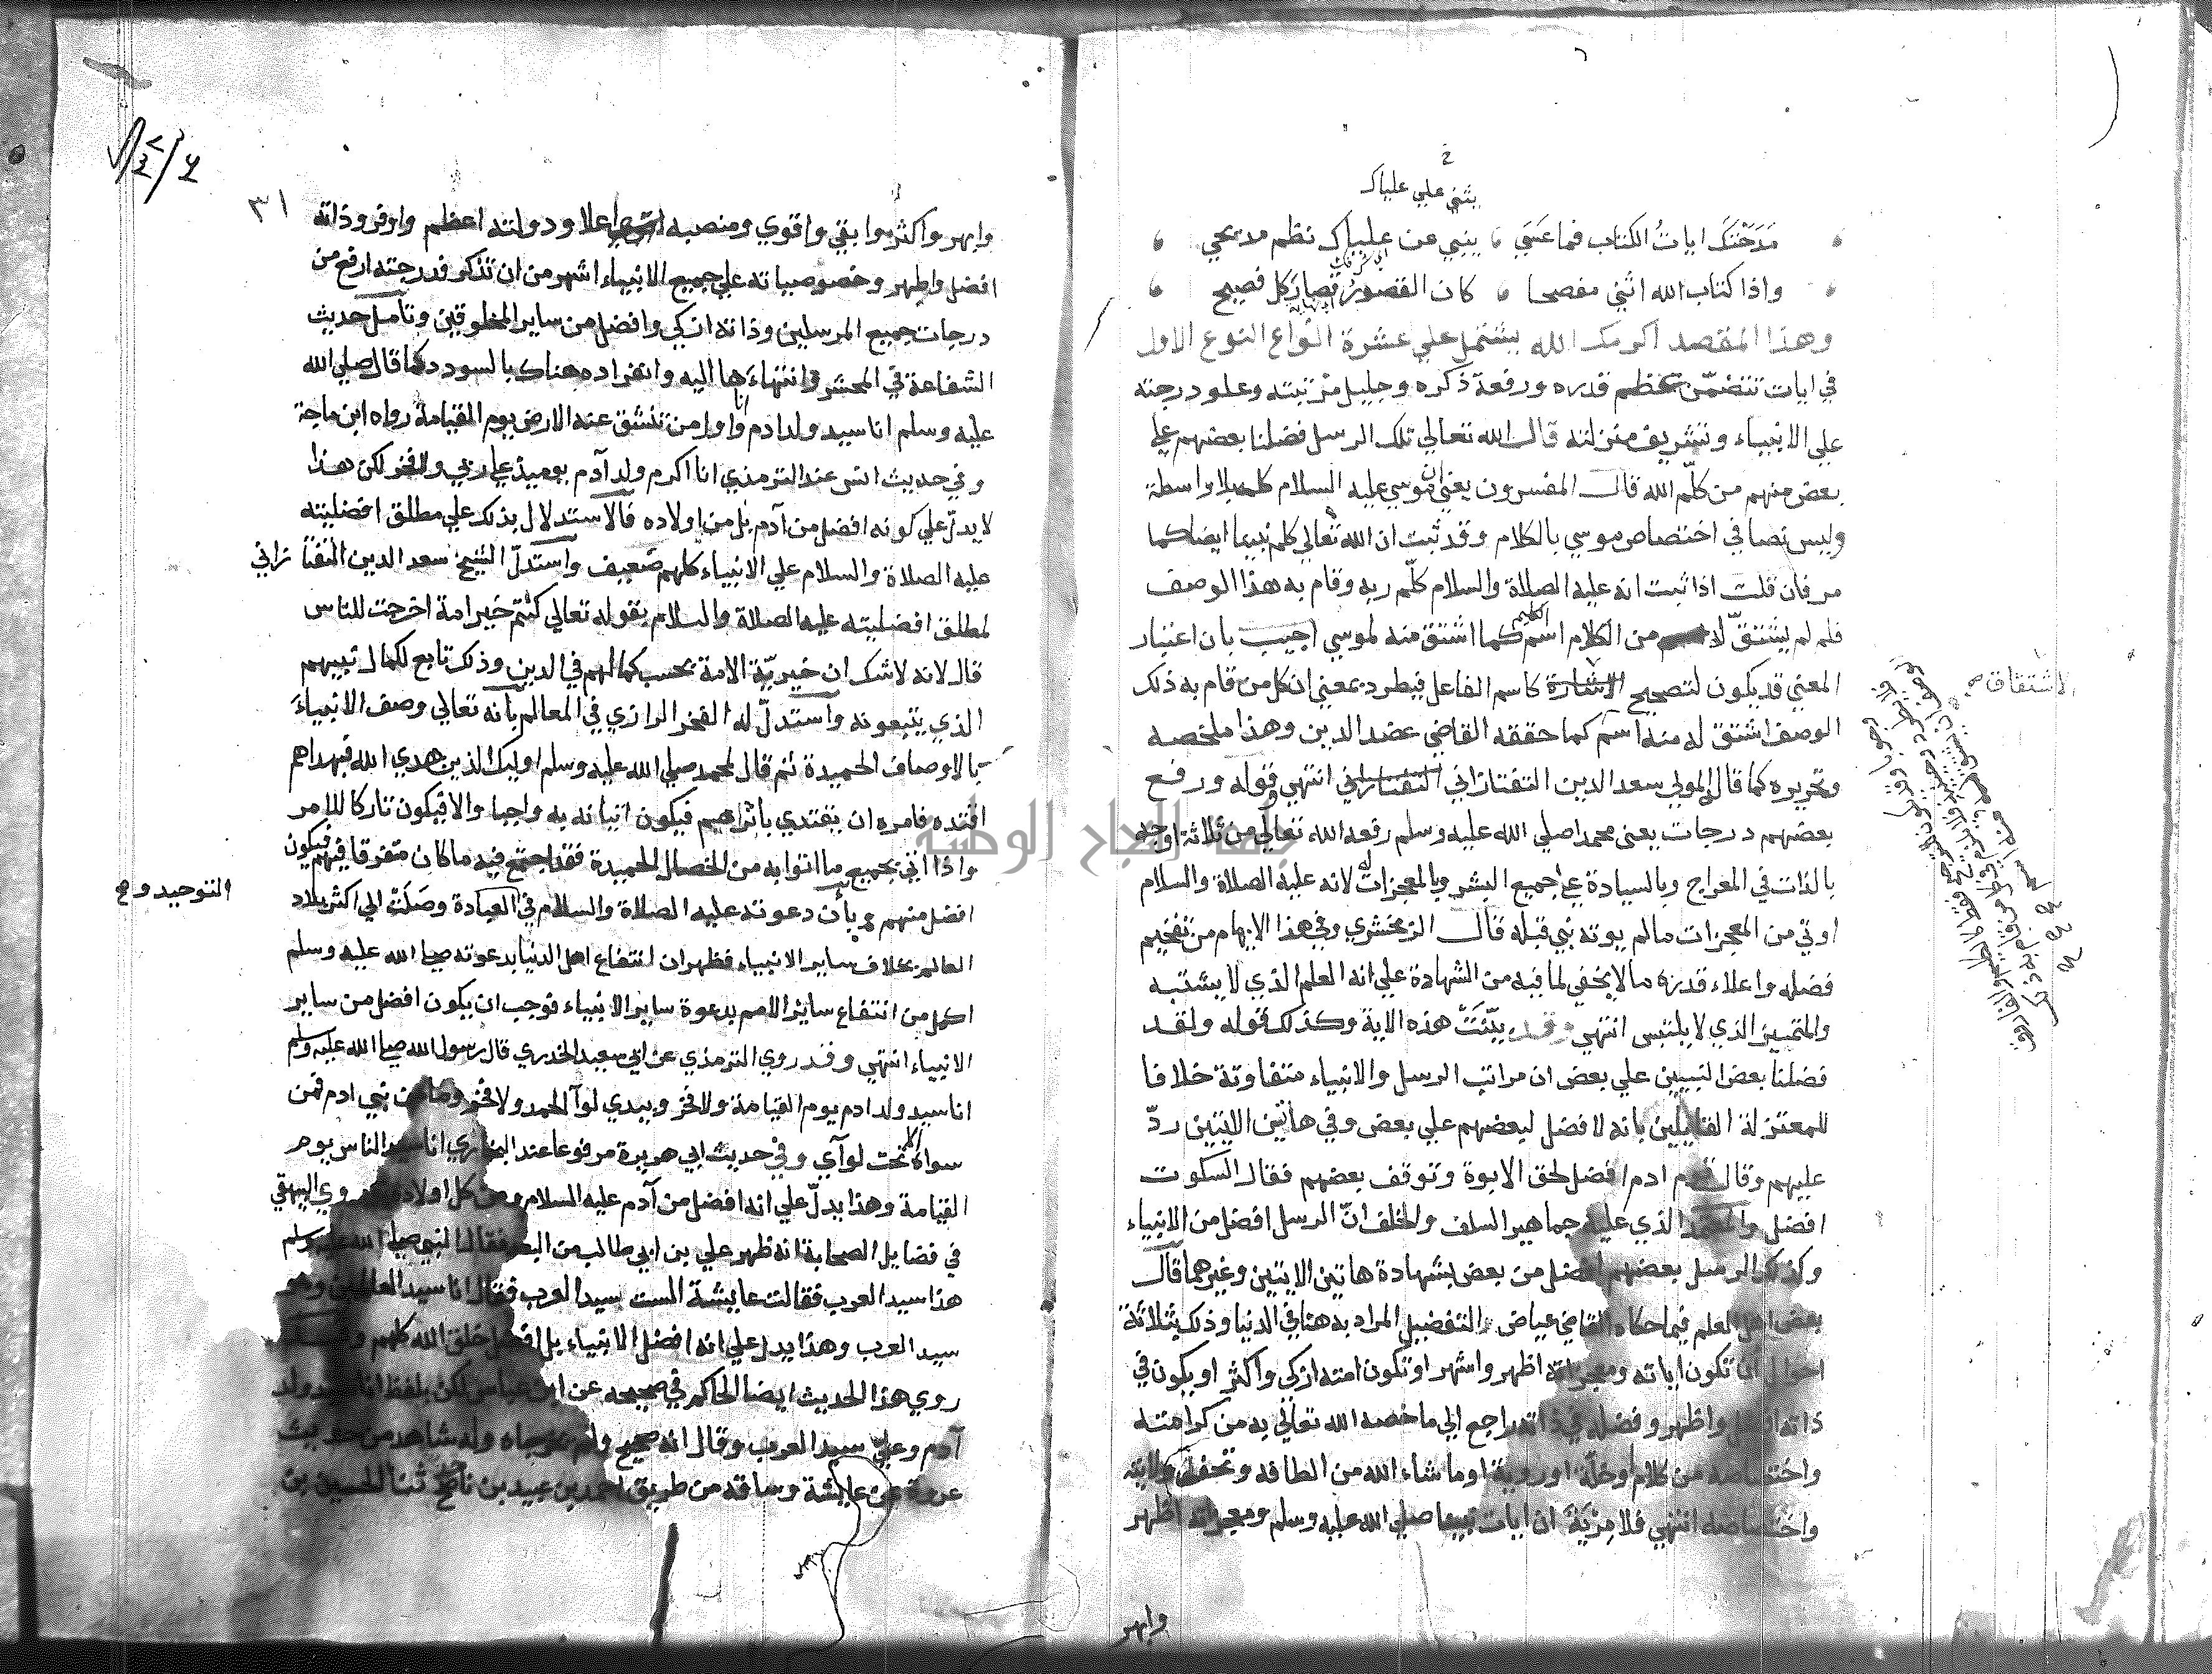 يثني علي علياك
مَدَحَتْكَ اياتُ الكتاب فما عسَي ينبي عن علياك نظم مديحي
واذا كتاب الله اثني مفصحا كان القصورُ قصارَ كل فصيح
وهذا المقصد اكرمك الله يشتمل علي عشرة انواع النوع الاول
في ايات تتضمّن عظم قدره ورفعة ذكره وجليل مرتبته وعلو درجته
علي الانبياء وتشريف منزلته قال الله تعالي تلك الرسل فضلنا بعضهم علي
بعض منهم من كلّم الله قال المفسرون يعني ان موسي عليه السلام كلمه بلا واسطة
وليس نصا في اختصاص موسي بالكلام وقد ثبت ان الله تعالي كلم نبينا ايضا كما
مر فان قلت اذا ثبت انه عليه الصلاة والسلام كلّم ربه وقام به هذا الوصف
فلم لم يشتقّ له من الكلام اسم الكليم كما اشتق منه لموسي اجيب بان اعتبار
المعني قد يكون لتصحيح الاشتقاق كاسم الفاعل فيطرد بمعني ان كل من قام به ذلك
الوصف اشتق له منه اسم كما حققه القاضي عضد الدين وهذا ملخصه
وتحريره كما قال المولي سعد الدين التفتازاني انتهي وقوله ورفع
بعضهم درجات يعني محمدا صلي الله عليه وسلم رفعه الله تعالي من ثلاثة اوجه
بالذات في المعراج وبالسيادة علي جميع البشر وبالمعجزات لانه عليه الصلاة والسلام
اوتي من المعجزات مالم يوته نبي قبله قال الزمخشري وفي هذا الابهام من تفخيم
فضله واعلاء قدره مالا يخفي لما فيه من الشهادة علي انه العلم الذي لا يشتبه
والمتميز الذي لا يلتبس انتهي وقد بيّنَتْ هذه الاية وكذلك قوله ولقد
فضلنا بعض النبيين علي بعض ان مراتب الرسل والانبياء متفاوتة خلافا
للمعتزلة القايلين بانه لا فضل لبعضهم علي بعض وفي هاتين الايتين ردّ
عليهم وقال قوم ادم افضل لحق الابوة وتوقف بعضهم فقال السكوت
افضل والمعتمد الذي عليه جماهير السلف والخلف انّ الرسل افضل من الانبياء
وكذلك الرسل بعضهم افضل من بعض بشهادة هاتين الايتين وغيرهما قال
بعض اهل العلم فيما حكاه القاضي عياض والتفضيل المراد به هنا في الدنيا وذلك بثلاثة
احوال ان تكون اياته ومعجزاته اظهر واشهر او تكون امته ازكي واكثر او يكون في
ذاته افضل واظهر وفضله في ذاته راجع الي ما خصه الله تعالي به من كرامته
واختصاصه من كلام او خلّة او روية او ما شاء الله من الطافه وتحف ولايته
واختصاصه انتهي فلا مِرْيَةَ ان ايات نبينا صلي الله عليه وسلم ومعجزاته اظهر
وابهر
الاشتقاق صح
٣١
وابهر واكثر وابقي واقوي ومنصبه اعلا ودولته اعظم واوفر وذاته
افضل واطهر وخصوصياته علي جميع الانبياء اشهر من ان تذكر فدرجته ارفع من
درجات جميع المرسلين وذاته ازكي وافضل من ساير المخلوقين وتامل حديث
الشفاعة في المحشر وانتهاءَها اليه وانفراده هناك بالسودد كما قال صلي الله
عليه وسلم انا سيد ولد ادم وانا اول من تنشق عنه الارض يوم القيامة رواه ابن ماجة
وفي حديث انس عند الترمذي انا اكرم ولد آدم يوميذ علي ربي ولا فخر لكن هذا
لا يدلّ علي كونه افضل من آدم بل من اولاده فالاستدلال بذلك علي مطلق افضليته
عليه الصلاة والسلام علي الانبياء كلهم ضعيف واستدلّ الشيخ سعد الدين التفتازاني
لمطلق افضليته عليه الصلاة والسلام بقوله تعالي كنتم خير امة اخرجت للناس
قال لانه لاشك ان خيريّة الامة بحسب كمالهم في الدين وذلك تابع لكمال نبيهم
الذي يتبعونه واستدلّ له الفخر الرازي في المعالم بانه تعالي وصف الانبياءَ
بالاوصاف الحميدة ثم قال لمحمد صلي الله عليه وسلم اوليك الذين هدي الله فبهداهم
اقتده فامره ان يقتدي باثرهم فيكون اتيانه به واجبا والا فيكون تاركا للامر
واذا اتي بجميع ما اتوا به من الخصال الحميدة فقد اجتمع فيه ما كان متفرقا فيهم فيكون
افضل منهم وبأن دعوته عليه الصلاة والسلام في العبادة وصَلَتْ الي اكثر بلاد
التوحيد و
العالم بخلاف ساير الانبياء فظهر ان انتفاع اهل الدنيا بدعوته صلي الله عليه وسلم
اكمل من انتفاع ساير الامم بدعوة ساير الانبياء فوجب ان يكون افضل من ساير
الانبياء انتهي وقد روي الترمذي عن ابي سعيد الخدري قال رسول الله صلي الله عليه وسلم
انا سيد ولد ادم يوم القيامة ولا فخر وبيدي لوآ الحمد ولا فخر وما من نبي ادم فمن
سواه الا تحت لوآي وفي حديث ابي هريرة مرفوعا عند البخاري انا سيد الناس يوم
القيامة وهذا يدلّ علي انه افضل من آدم عليه السلام ومن كل اولاده وروي البيهقي
في فضايل الصحابة انه ظهر علي بن ابي طالب من البعد فقال النبي صلي الله عليه وسلم
هذا سيد العرب فقالت عايشة الست سيد العرب فقال انا سيد العالمين وهو
سيد العرب وهذا يدل علي انه افضل الانبياء بل افضل خلق الله كلهم وقد
روي هذا الحديث ايضا الحاكم في صحيحه عن ابن عباس لكن بلفظ انا سيد ولد
آدم وعليّ سيد العرب وقال انه صحيح ولم يخرجاه وله شاهد من حديث
عروة عن عايشة وساقه من طريق احمد بن عبيد بن ناصح ثنا الحسين بن